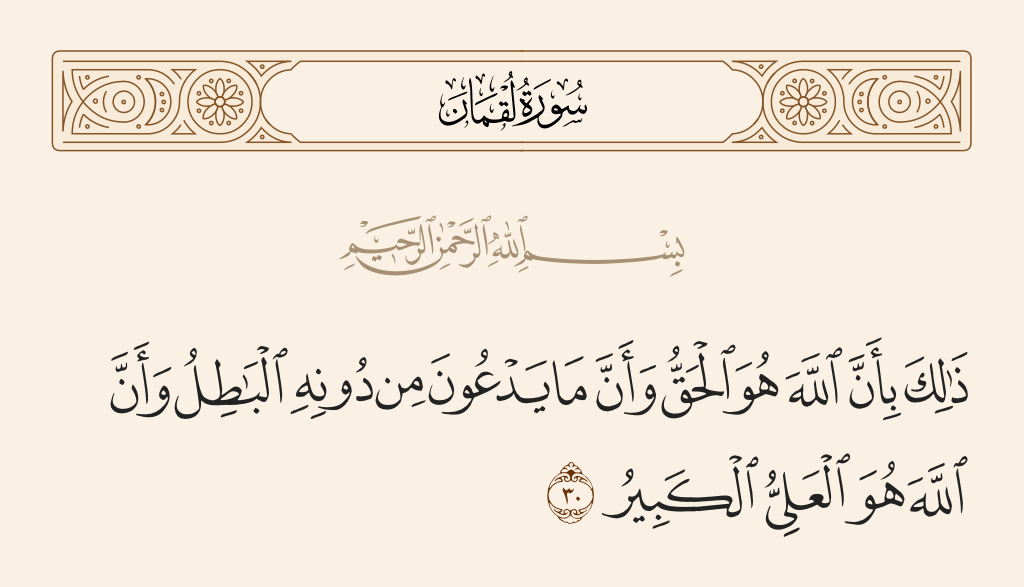 سُورَةُ لُقْمَانَ
بِسْمِ ٱللَّهِ ٱلرَّحْمَٰنِ ٱلرَّحِيمِ
ذَٰلِكَ بِأَنَّ ٱللَّهَ هُوَ ٱلْحَقُّ وَأَنَّ مَا يَدْعُونَ مِن دُونِهِ ٱلْبَٰطِلُ وَأَنَّ
ٱللَّهَ هُوَ ٱلْعَلِىُّ ٱلْكَبِيرُ ٣٠